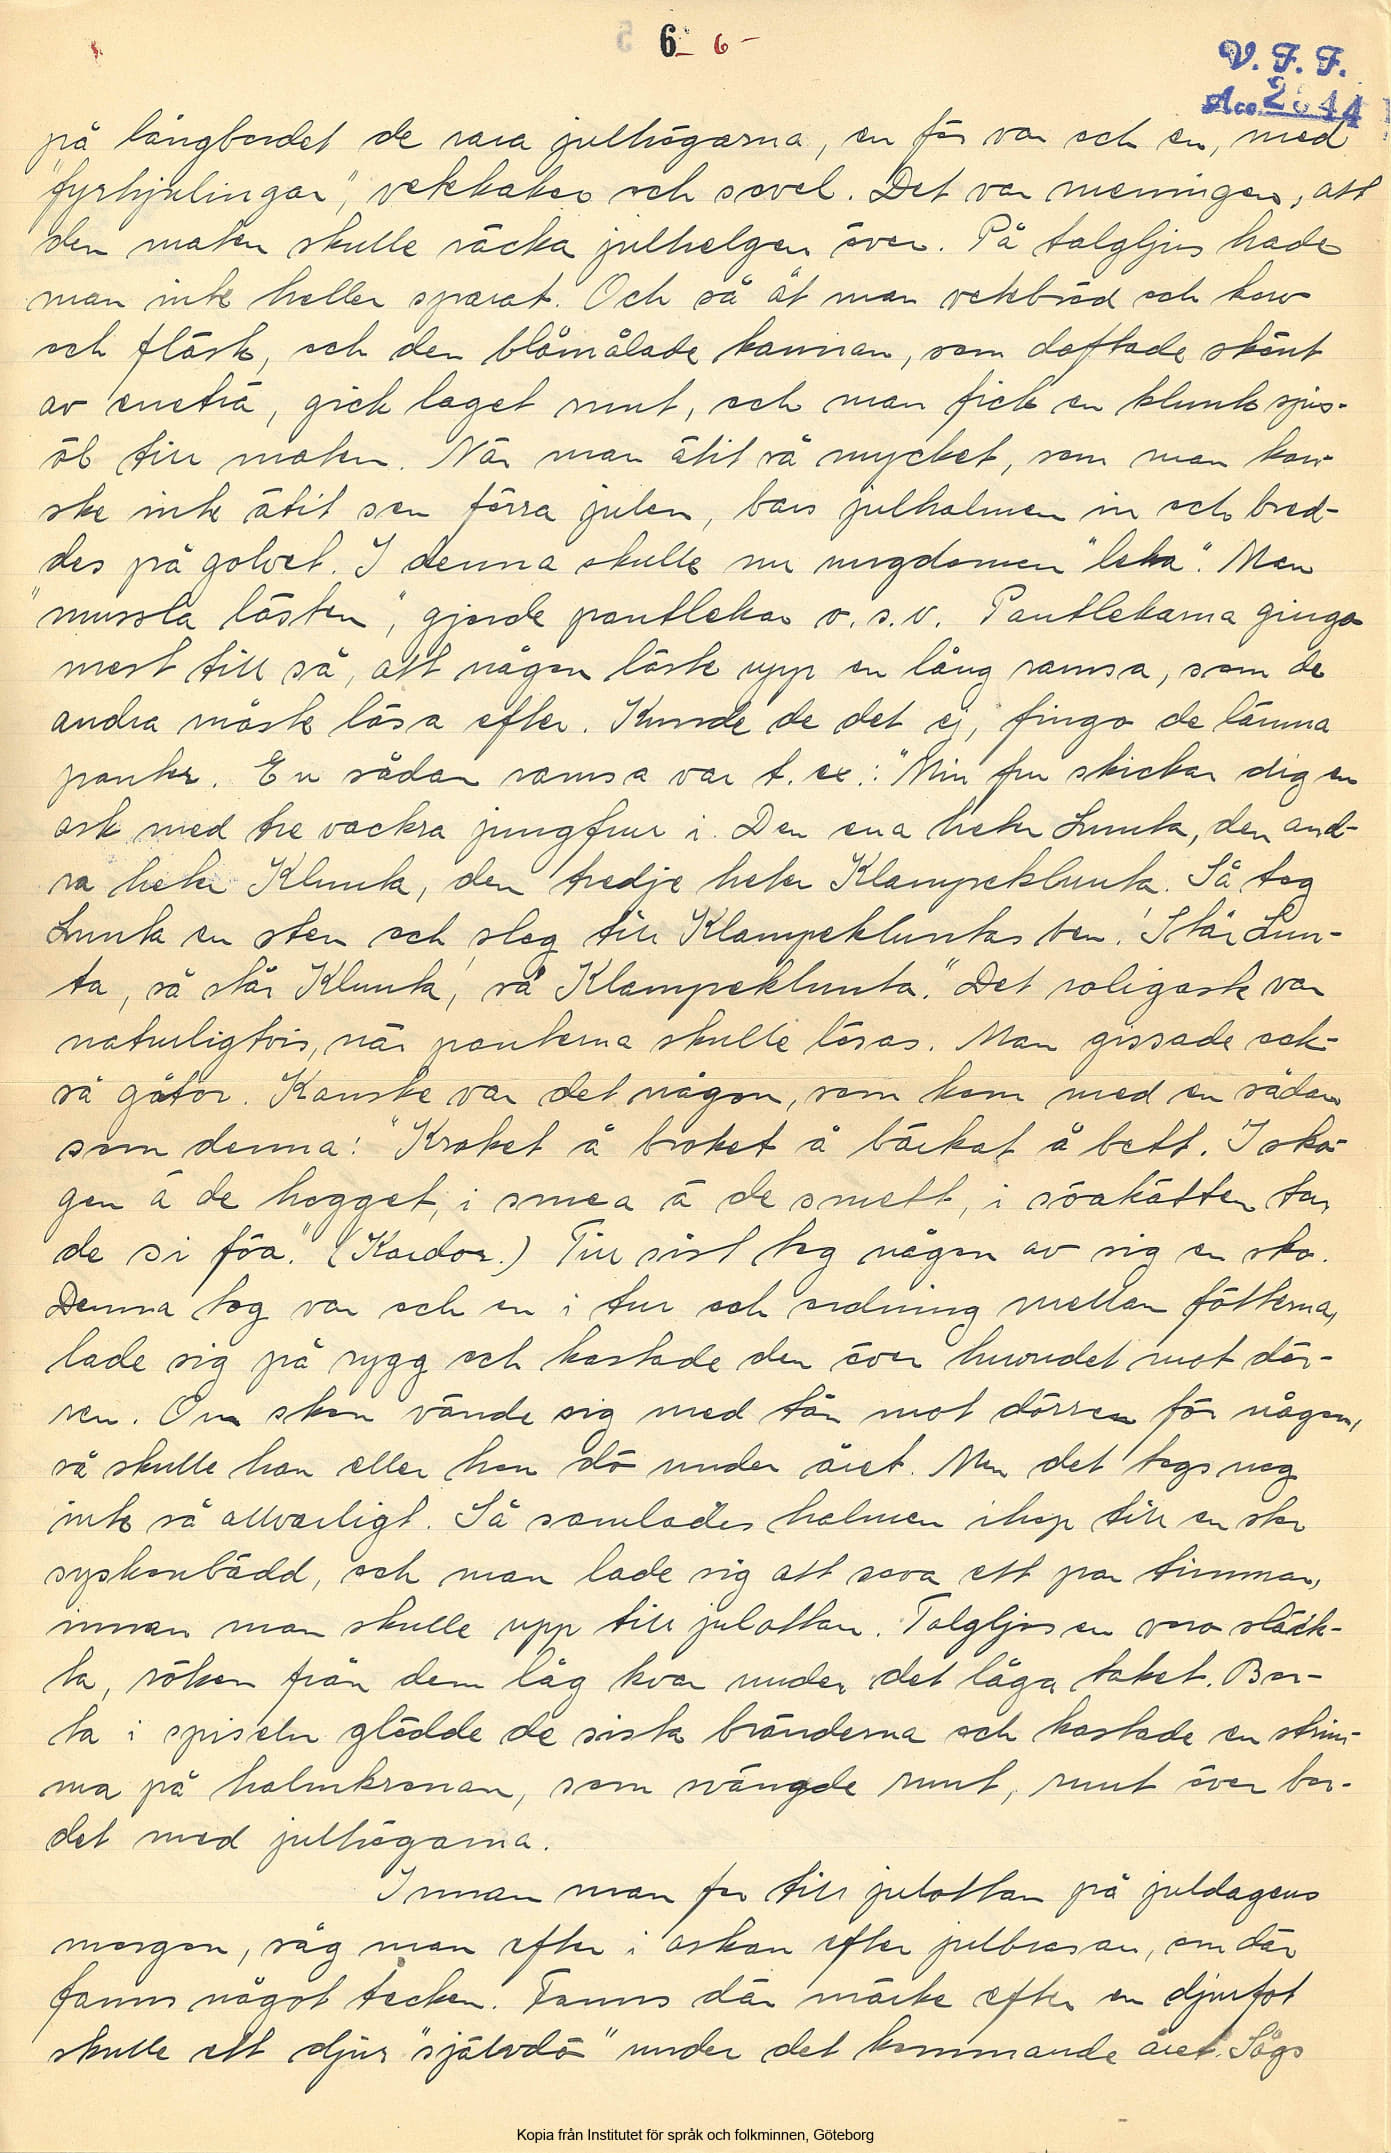 6 6
V. F. F.
Acc. 2644
på långbordet de rara julhögarna, en för var och en, med
"fyrhjulingar", vekkakor och sovel. Det var meningen, att
den maten skulle räcka julhelgen över. På talgljus hade
man inte heller sparat. Och så åt man vekbröd och korv
och fläsk, och den blåmålade kannan, som doftade skönt
av eneträ, gick laget runt, och man fick en klunk sjus-
öl till maten. När man ätit så mycket, som man kan-
ske inte ätit sen förra julen, bars julhalmen in och bred-
des på golvet. I denna skulle nu ungdomen "leka". Man
"mussla lästen", gjorde pantlekar o. s. v. Pantlekarna gingo
mest till så, att någon läste upp en lång ramsa, som de
andra måste läsa efter. Kunde de det ej, fingo de lämna
panter. En sådan ramsa var t. ex.: "Min fru skickar dig en
ask med tre vackra jungfrur i. Den ena heter Lunta, den and-
ra heter Klunta, den tredje heter Klampeklunta. Så tog
Lunta en sten och slog till Klampekluntas ben. 'Står Lun-
ta, så står Klunta', så Klampeklunta." Det roligaste var
naturligtvis, när panterna skulle lösas. Man gissade ock-
så gåtor. Kanske var det någon, som kom med en sådan
som denna: "Kroket å broket å bärkat å bett. I skô-
gen ä de hogget, i smea ä de smett, i söakätten tar
de si föa." (Kardor.) Till sist tog någon av sig en sko.
Denna tog var och en i tur och ordning mellan fötterna,
lade sig på rygg och kastade den över huvudet mot dör-
ren. Om skon vände sig med tån mot dörren för någon,
så skulle han eller hon dö under året. Men det togs nog
inte så allvarligt. Så samlades halmen ihop till en stor
syskonbädd, och man lade sig att sova ett par timmar,
innan man skulle upp till julottan. Talgljusen voro släck-
ta, röken från dem låg kvar under det låga taket. Bor-
ta i spiseln glödde de sista bränderna och kastade en strim-
ma på halmkronan, som svängde runt, runt över bor-
det med julhögarna.
Innan man for till julottan på juldagens
morgon, såg man efter i askan efter julbrasan, om där
fanns något tecken. Fanns där märke efter en djurfot
skulle ett djur "självdö" under det kommande året. Sågs
Kopia från Institutet för språk och folkminnen, Göteborg